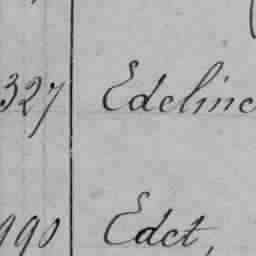 327 Edeline
990 Edet,